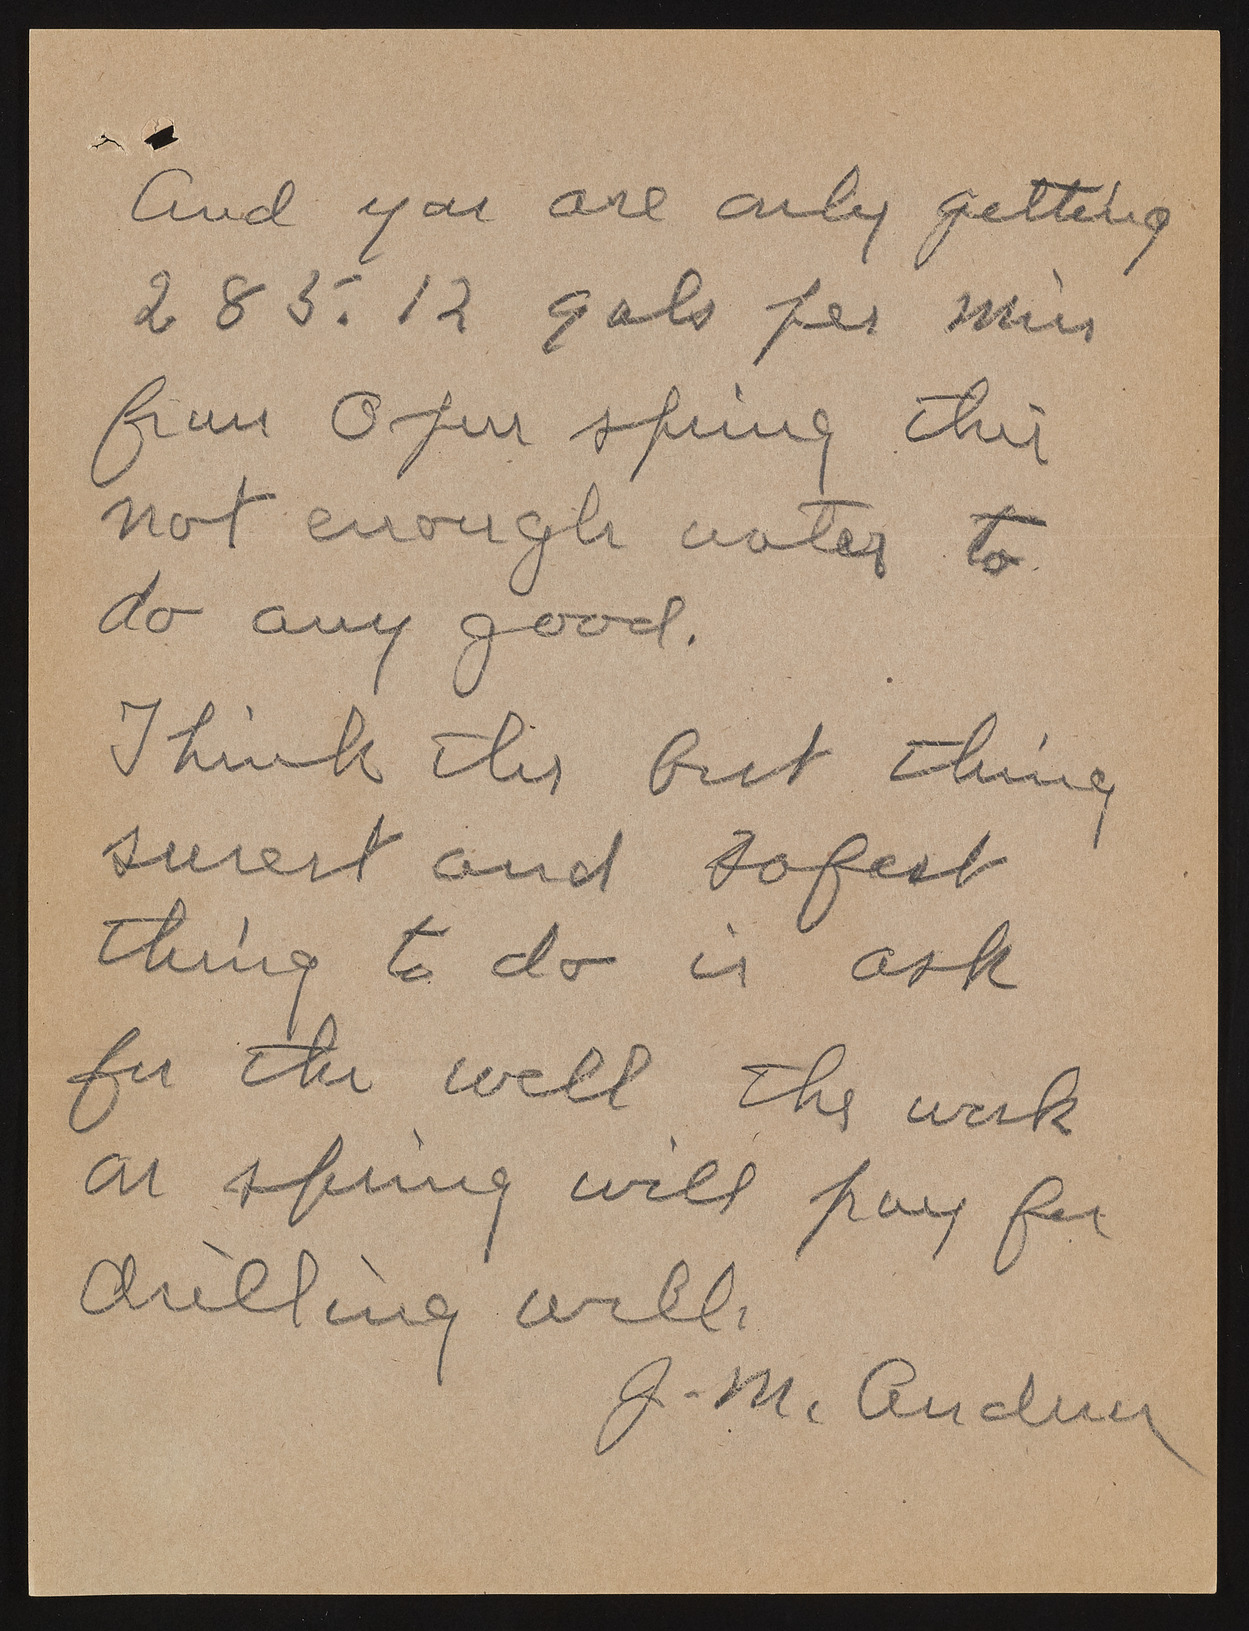 And you are only getting
285.12 gals per min
from Open spring this
not enough water to
do any good.
Think the best thing
surest and safest
thing to do is ask
for the well the work
on spring will pay for
drilling well.
J. M. Andrew